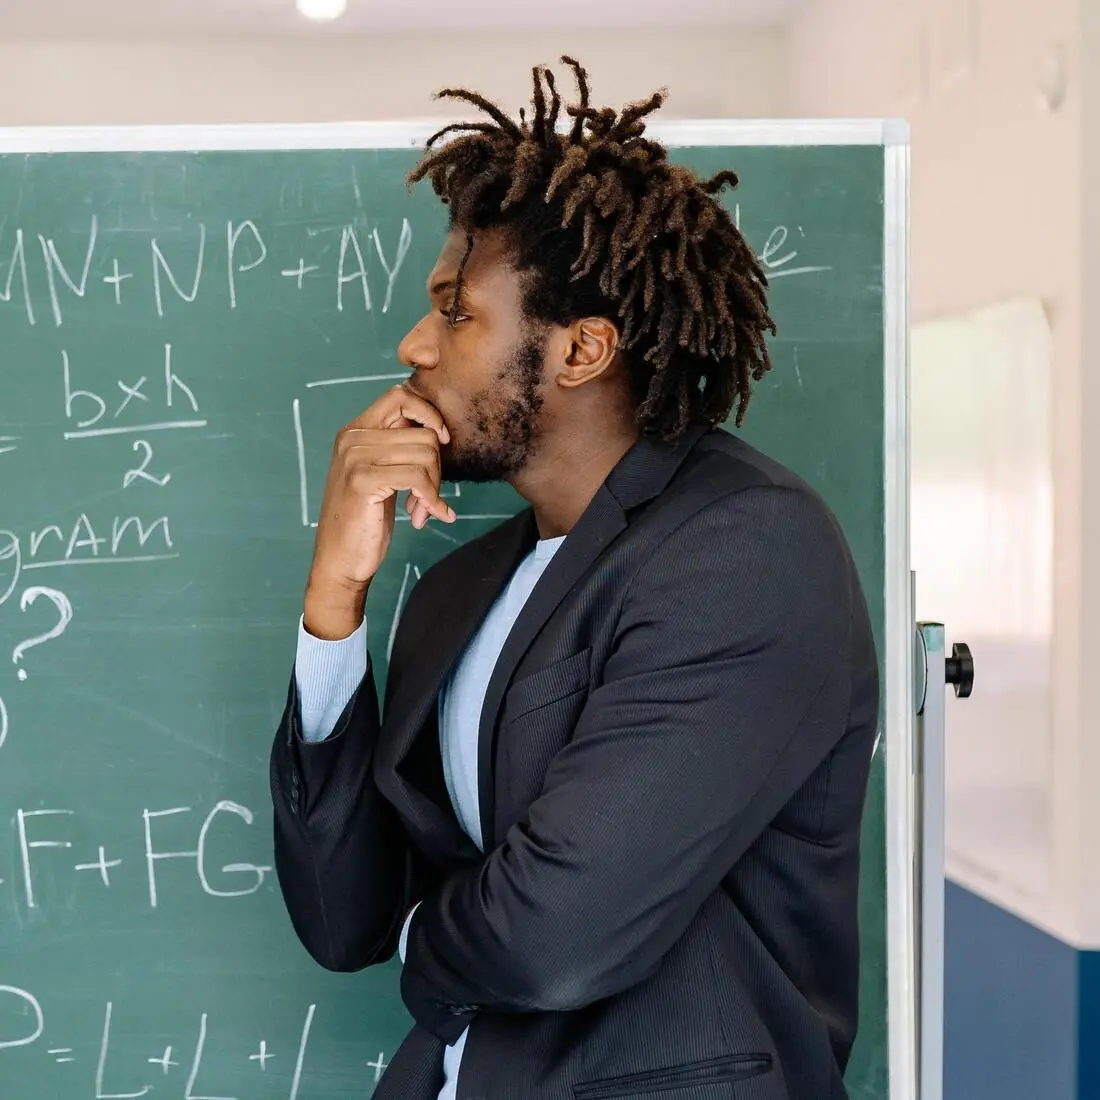 MN+NP+AY
b×h
2
gram
?
F+FG
P=L+L+L+